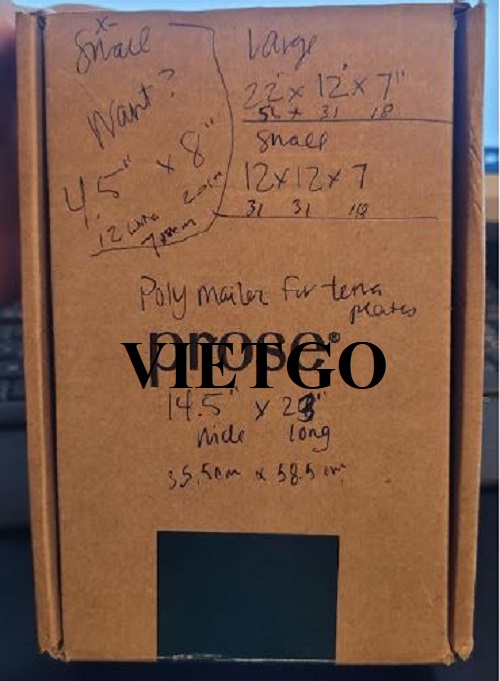 x-
Small
Want?
4.5" x 8"
12 cm
20cm
Large
22" x 12" x 7"
56 x 31 18
Small
12 x 12 x 7
31 31 18
Poly mailer for
plates
prose®
VIETGO
14.5" x 23"
wide long
35.5cm x 58.5 cm